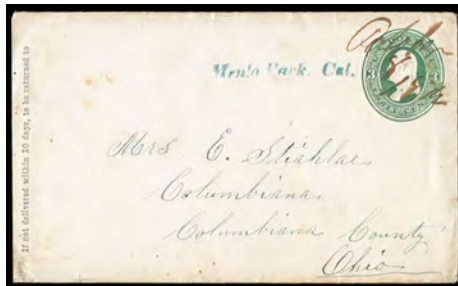 If not delivered within 10 days, to be returned to
Menlo Park. Cal.
3 3
Mrs E.
Columbiana
Columbiana County
Ohio